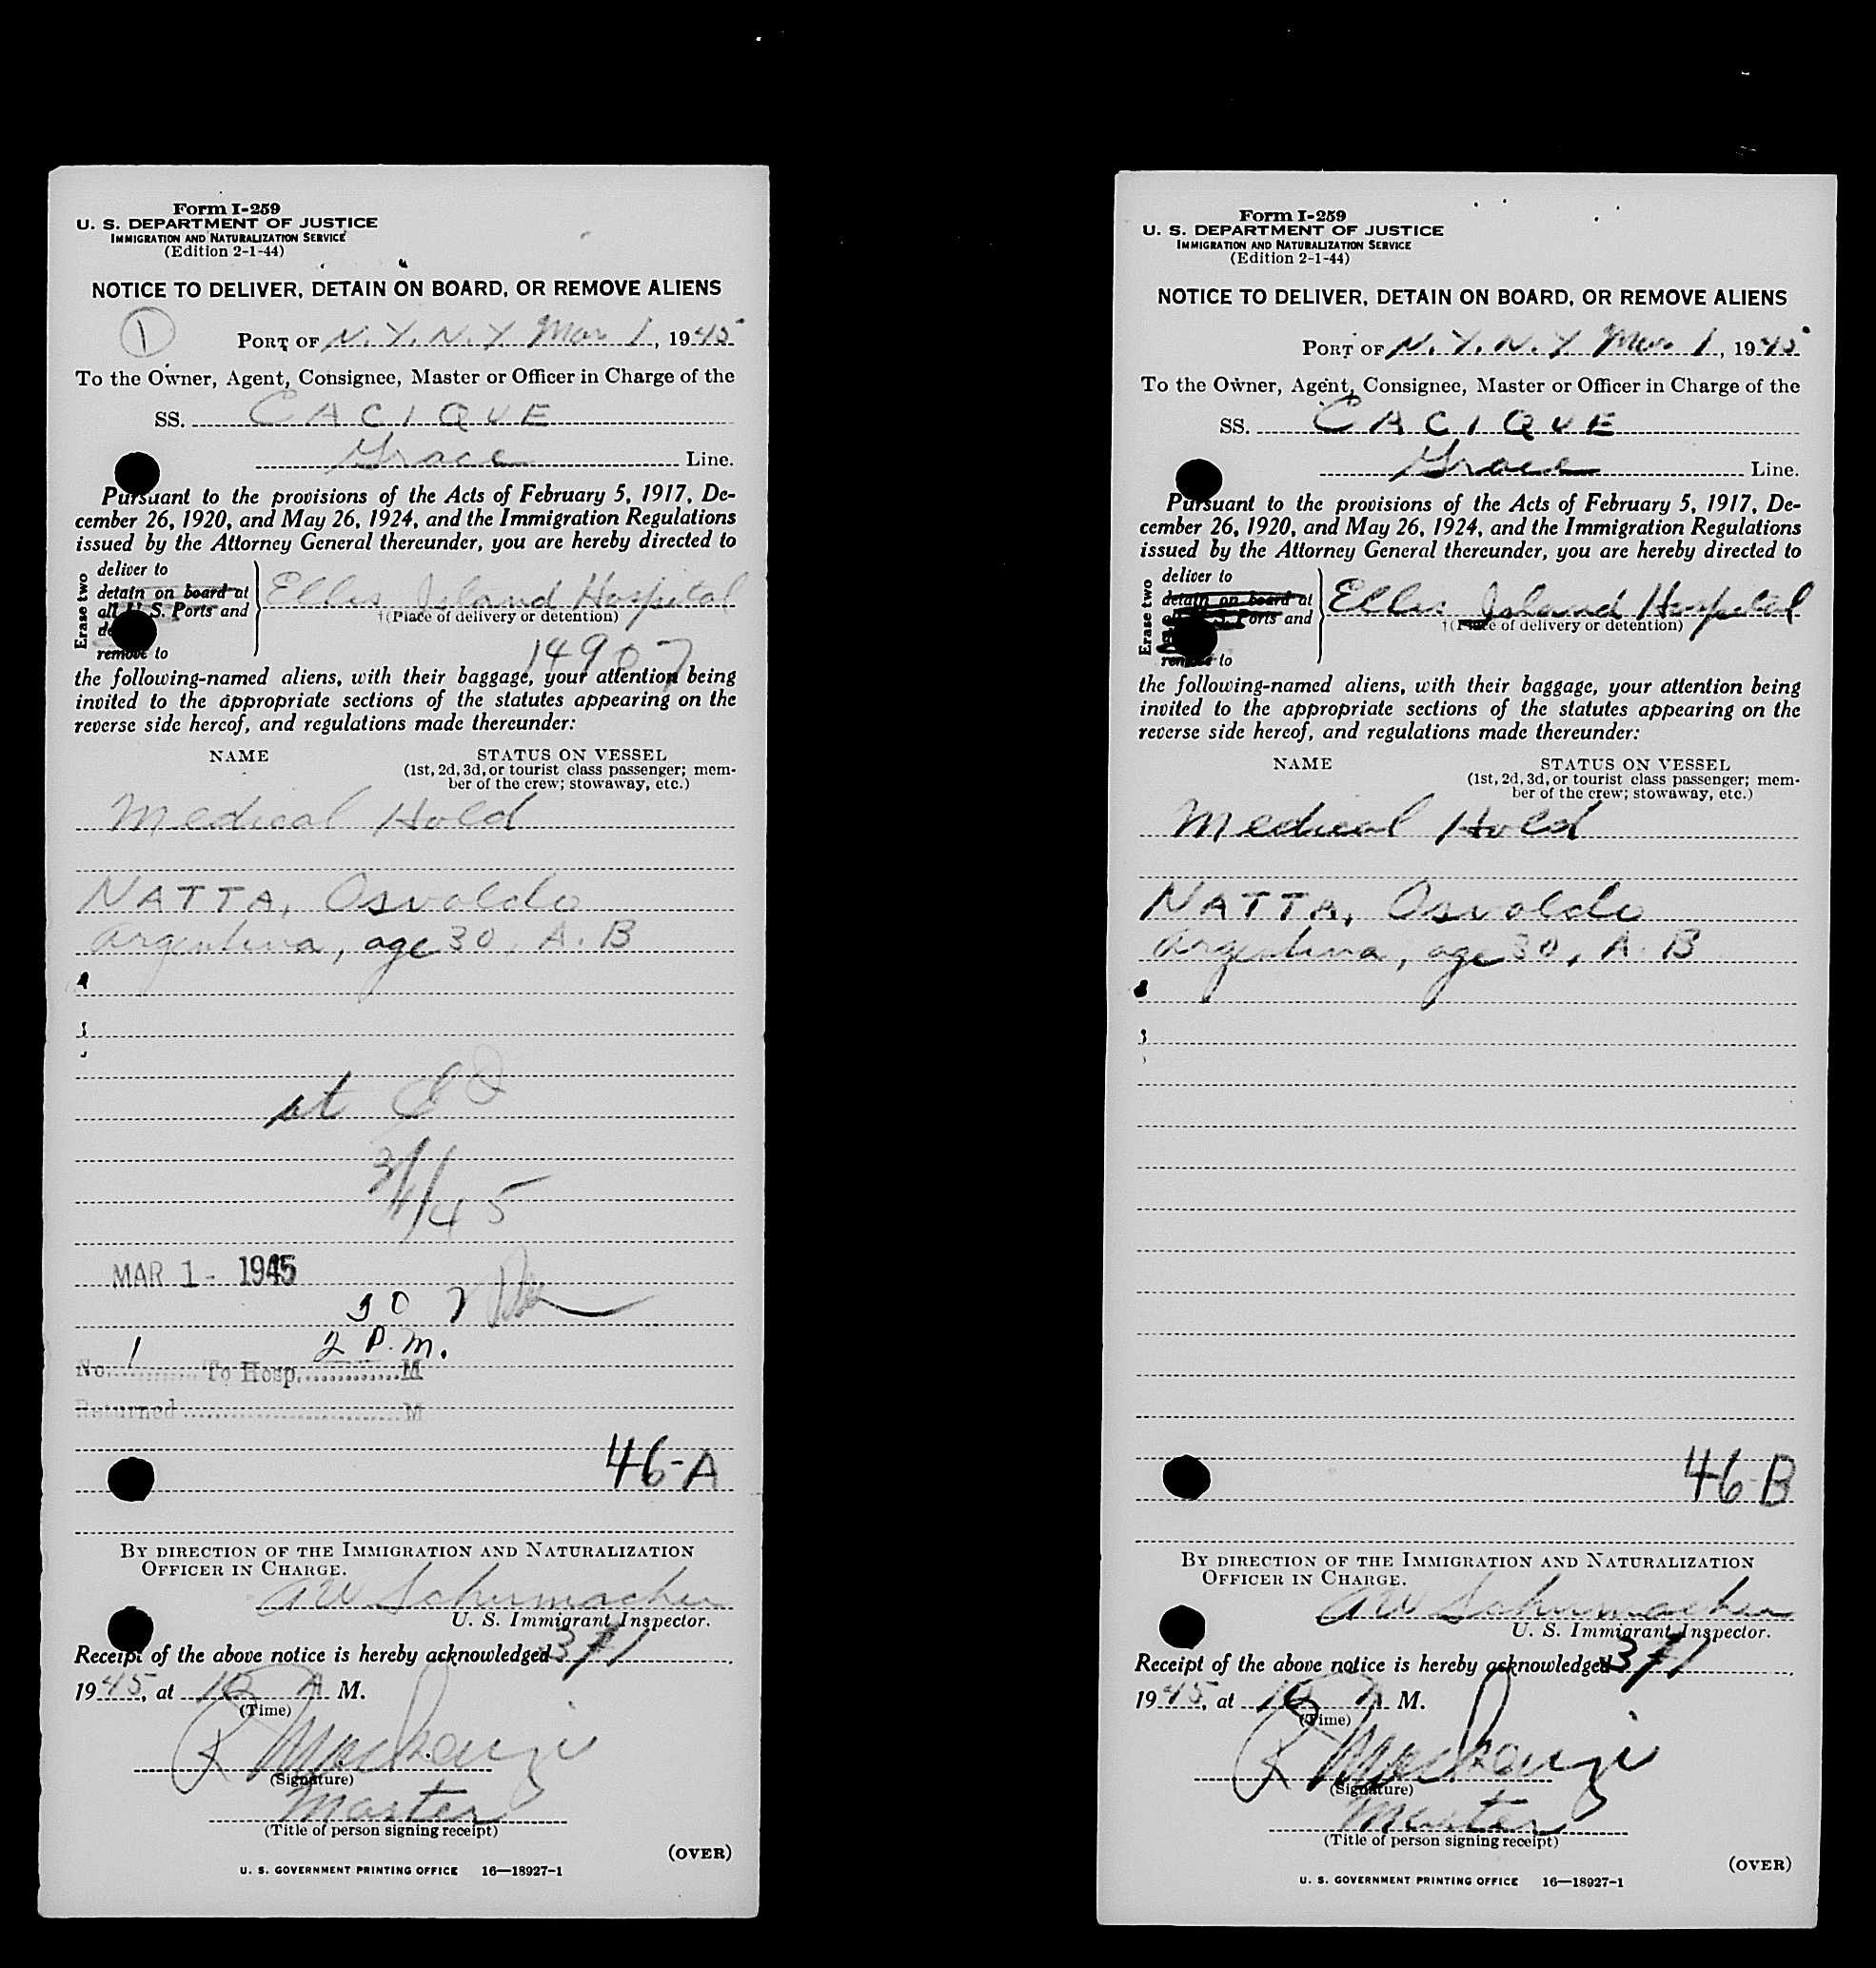 Form I-259
U. S. DEPARTMENT OF JUSTICE
IMMIGRATION AND NATURALIZATION SERVICE
(Edition 2-1-44)
NOTICE TO DELIVER, DETAIN ON BOARD, OR REMOVE ALIENS
1
PORT OF N. Y. N. Y. Mar 1, 1945
To the Owner, Agent, Consignee, Master or Officer in Charge of the
SS. CACIQUE
Grace Line.
Pursuant to the provisions of the Acts of February 5, 1917, De-
cember 26, 1920, and May 26, 1924, and the Immigration Regulations
issued by the Attorney General thereunder, you are hereby directed to
Erase two
deliver to
detain on board at
all U. S. Ports and
remove to
Ellis Island Hospital
†(Place of delivery or detention)
14907
the following-named aliens, with their baggage, your attention being
invited to the appropriate sections of the statutes appearing on the
reverse side hereof, and regulations made thereunder:
NAME STATUS ON VESSEL
(1st, 2d, 3d, or tourist class passenger; mem-
ber of the crew; stowaway, etc.)
Medical Hold
NATTA, Osvaldo
Argentina, age 30, A. B
at
3/1/45
MAR 1 - 1945
2 P.M.
No. 1 To Hosp. M
Returned M
46-A
BY DIRECTION OF THE IMMIGRATION AND NATURALIZATION
OFFICER IN CHARGE.
AW Schumacher
U. S. Immigrant Inspector.
Receipt of the above notice is hereby acknowledged 3/1
1945, at 10 A M.
(Time)
R Mackenzie
(Signature)
Master
(Title of person signing receipt)
(OVER)
U. S. GOVERNMENT PRINTING OFFICE 16—18927-1
Form I-259
U. S. DEPARTMENT OF JUSTICE
IMMIGRATION AND NATURALIZATION SERVICE
(Edition 2-1-44)
NOTICE TO DELIVER, DETAIN ON BOARD, OR REMOVE ALIENS
PORT OF N. Y. N. Y Mar 1, 1945
To the Owner, Agent, Consignee, Master or Officer in Charge of the
SS. CACIQUE
Grace Line.
Pursuant to the provisions of the Acts of February 5, 1917, De-
cember 26, 1920, and May 26, 1924, and the Immigration Regulations
issued by the Attorney General thereunder, you are hereby directed to
Erase two
deliver to
detain on board at
S. Ports and
remove to
Ellis Island Hospital
†(Place of delivery or detention)
the following-named aliens, with their baggage, your attention being
invited to the appropriate sections of the statutes appearing on the
reverse side hereof, and regulations made thereunder:
NAME STATUS ON VESSEL
(1st, 2d, 3d, or tourist class passenger; mem-
ber of the crew; stowaway, etc.)
Medical Hold
NATTA, Osvaldo
Argentina, age 30, A. B
46-B
BY DIRECTION OF THE IMMIGRATION AND NATURALIZATION
OFFICER IN CHARGE.
AW Schumacher
U. S. Immigrant Inspector.
Receipt of the above notice is hereby acknowledged 3/1
1945, at 10 A M.
(Time)
R Mackenzie
(Signature)
Master
(Title of person signing receipt)
(OVER)
U. S. GOVERNMENT PRINTING OFFICE 16—18927-1